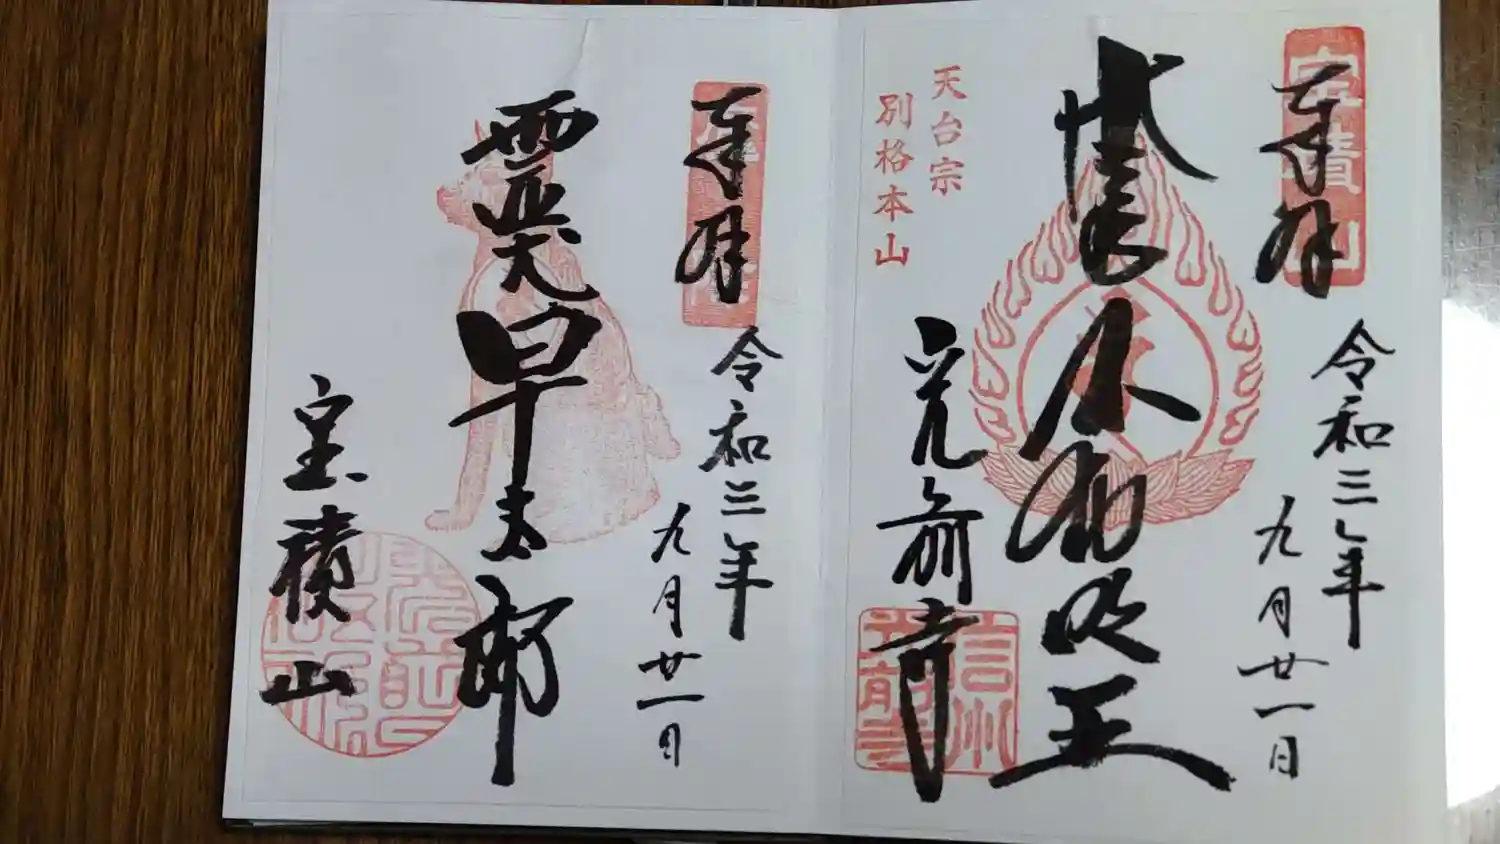 奉拝
令和三年
九月廿一日
不動明王
天台宗
別格本山
光前寺
奉拝
令和三年
九月廿一日
霊犬早太郎
宝積山